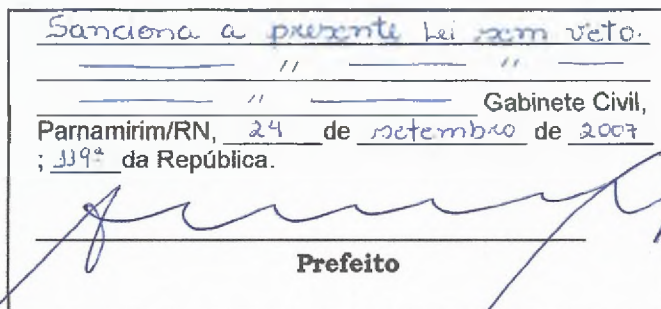 Sanciona a presente Lei sem veto.
———— // ———— // ——
———— // ———— Gabinete Civil,
Parnamirim/RN, 24 de setembro de 2007
; 119ª da República.
Prefeito